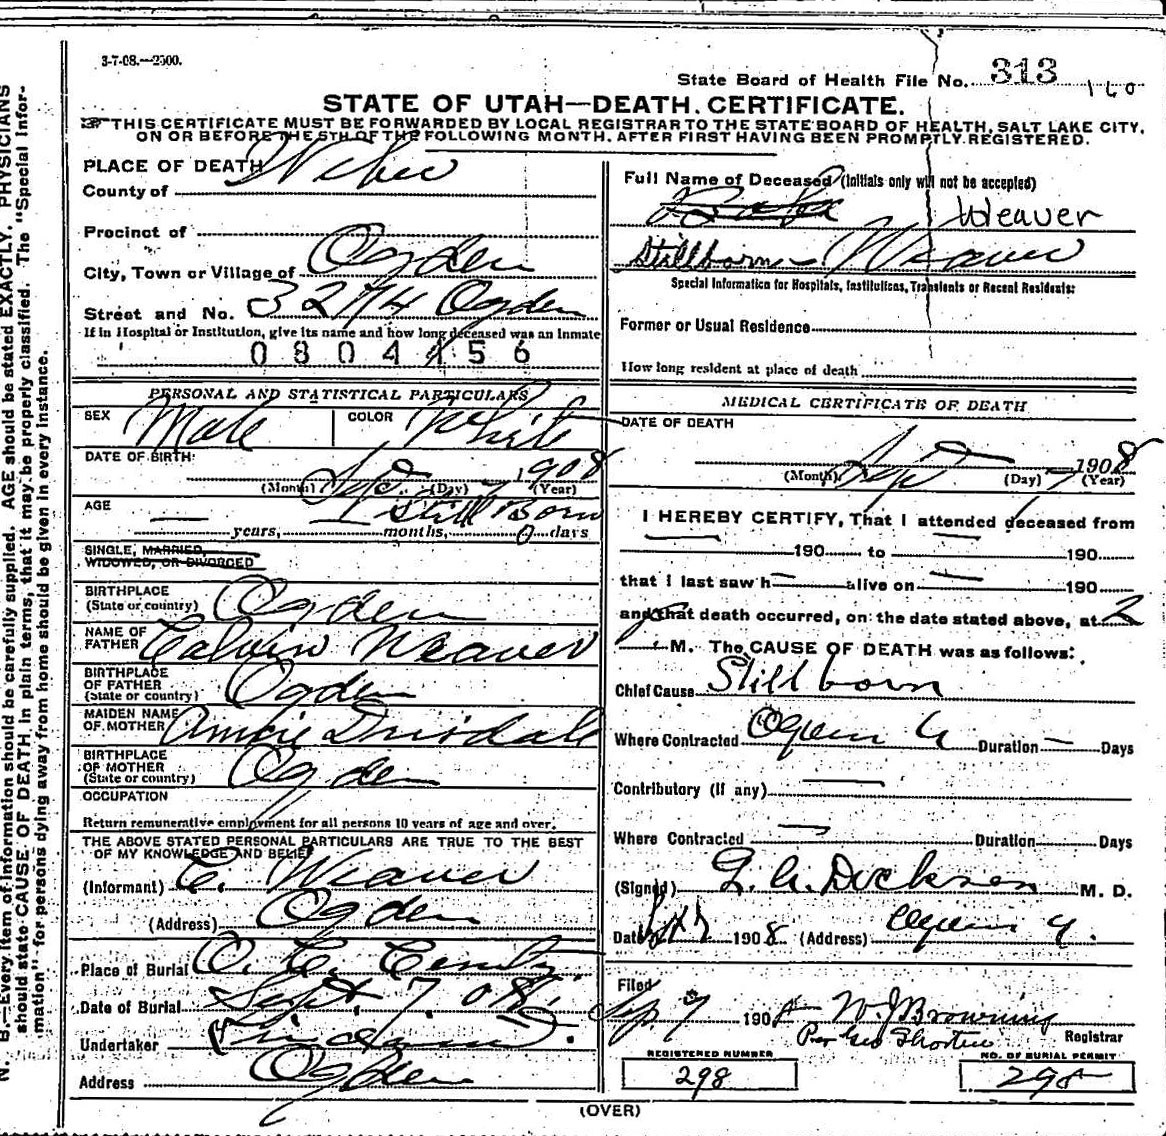 3-7-08.—2500.
State Board of Health File No. 313
160
STATE OF UTAH—DEATH CERTIFICATE.
THIS CERTIFICATE MUST BE FORWARDED BY LOCAL REGISTRAR TO THE STATE BOARD OF HEALTH, SALT LAKE CITY,
ON OR BEFORE THE 5TH OF THE FOLLOWING MONTH, AFTER FIRST HAVING BEEN PROMPTLY REGISTERED.
N. B.—Every item of information should be carefully supplied. AGE should be stated EXACTLY. PHYSICIANS
should state CAUSE OF DEATH in plain terms, that it may be properly classified. The "Special Infor-
mation" for persons dying away from home should be given in every instance.
PLACE OF DEATH
County of Weber
Precinct of
City, Town or Village of Ogden
Street and No. 3274 Ogden
If in Hospital or Institution, give its name and how long deceased was an inmate
0804456
PERSONAL AND STATISTICAL PARTICULARS
SEX Male COLOR White
DATE OF BIRTH
Sept 7 1908
(Month) (Day) (Year)
AGE Still Born
years, months, 0 days
SINGLE, MARRIED,
WIDOWED, OR DIVORCED
BIRTHPLACE
(State or country) Ogden
NAME OF
FATHER Calvin Weaver
BIRTHPLACE
OF FATHER
(State or country) Ogden
MAIDEN NAME
OF MOTHER Annie
BIRTHPLACE
OF MOTHER
(State or country) Ogden
OCCUPATION
Return remunerative employment for all persons 10 years of age and over.
THE ABOVE STATED PERSONAL PARTICULARS ARE TRUE TO THE BEST
OF MY KNOWLEDGE AND BELIEF
(Informant) C. Weaver
(Address) Ogden
Place of Burial O. C. Cemty.
Date of Burial Sept. 7. 08.
Undertaker
Address Ogden
Full Name of Deceased (Initials only will not be accepted)
Weaver
Stillborn - Weaver
Special Information for Hospitals, Institutions, Transients or Recent Residents:
Former or Usual Residence
How long resident at place of death
MEDICAL CERTIFICATE OF DEATH
DATE OF DEATH
Sept 7 1908
(Month) (Day) (Year)
I HEREBY CERTIFY, That I attended deceased from
190 to 190
that I last saw h alive on 190
and that death occurred, on the date stated above, at 2
M. The CAUSE OF DEATH was as follows:
Chief Cause Stillborn
Where Contracted Ogden U Duration — Days
Contributory (If any) —
Where Contracted — Duration Days
(Signed) L. A. Dickson M. D.
Date Sept 7 1908 (Address) Ogden U.
Filed
Sep 7 1908 W. J. Browning
Per Geo Shorten Registrar
REGISTERED NUMBER
298
NO. OF BURIAL PERMIT
298
(OVER)